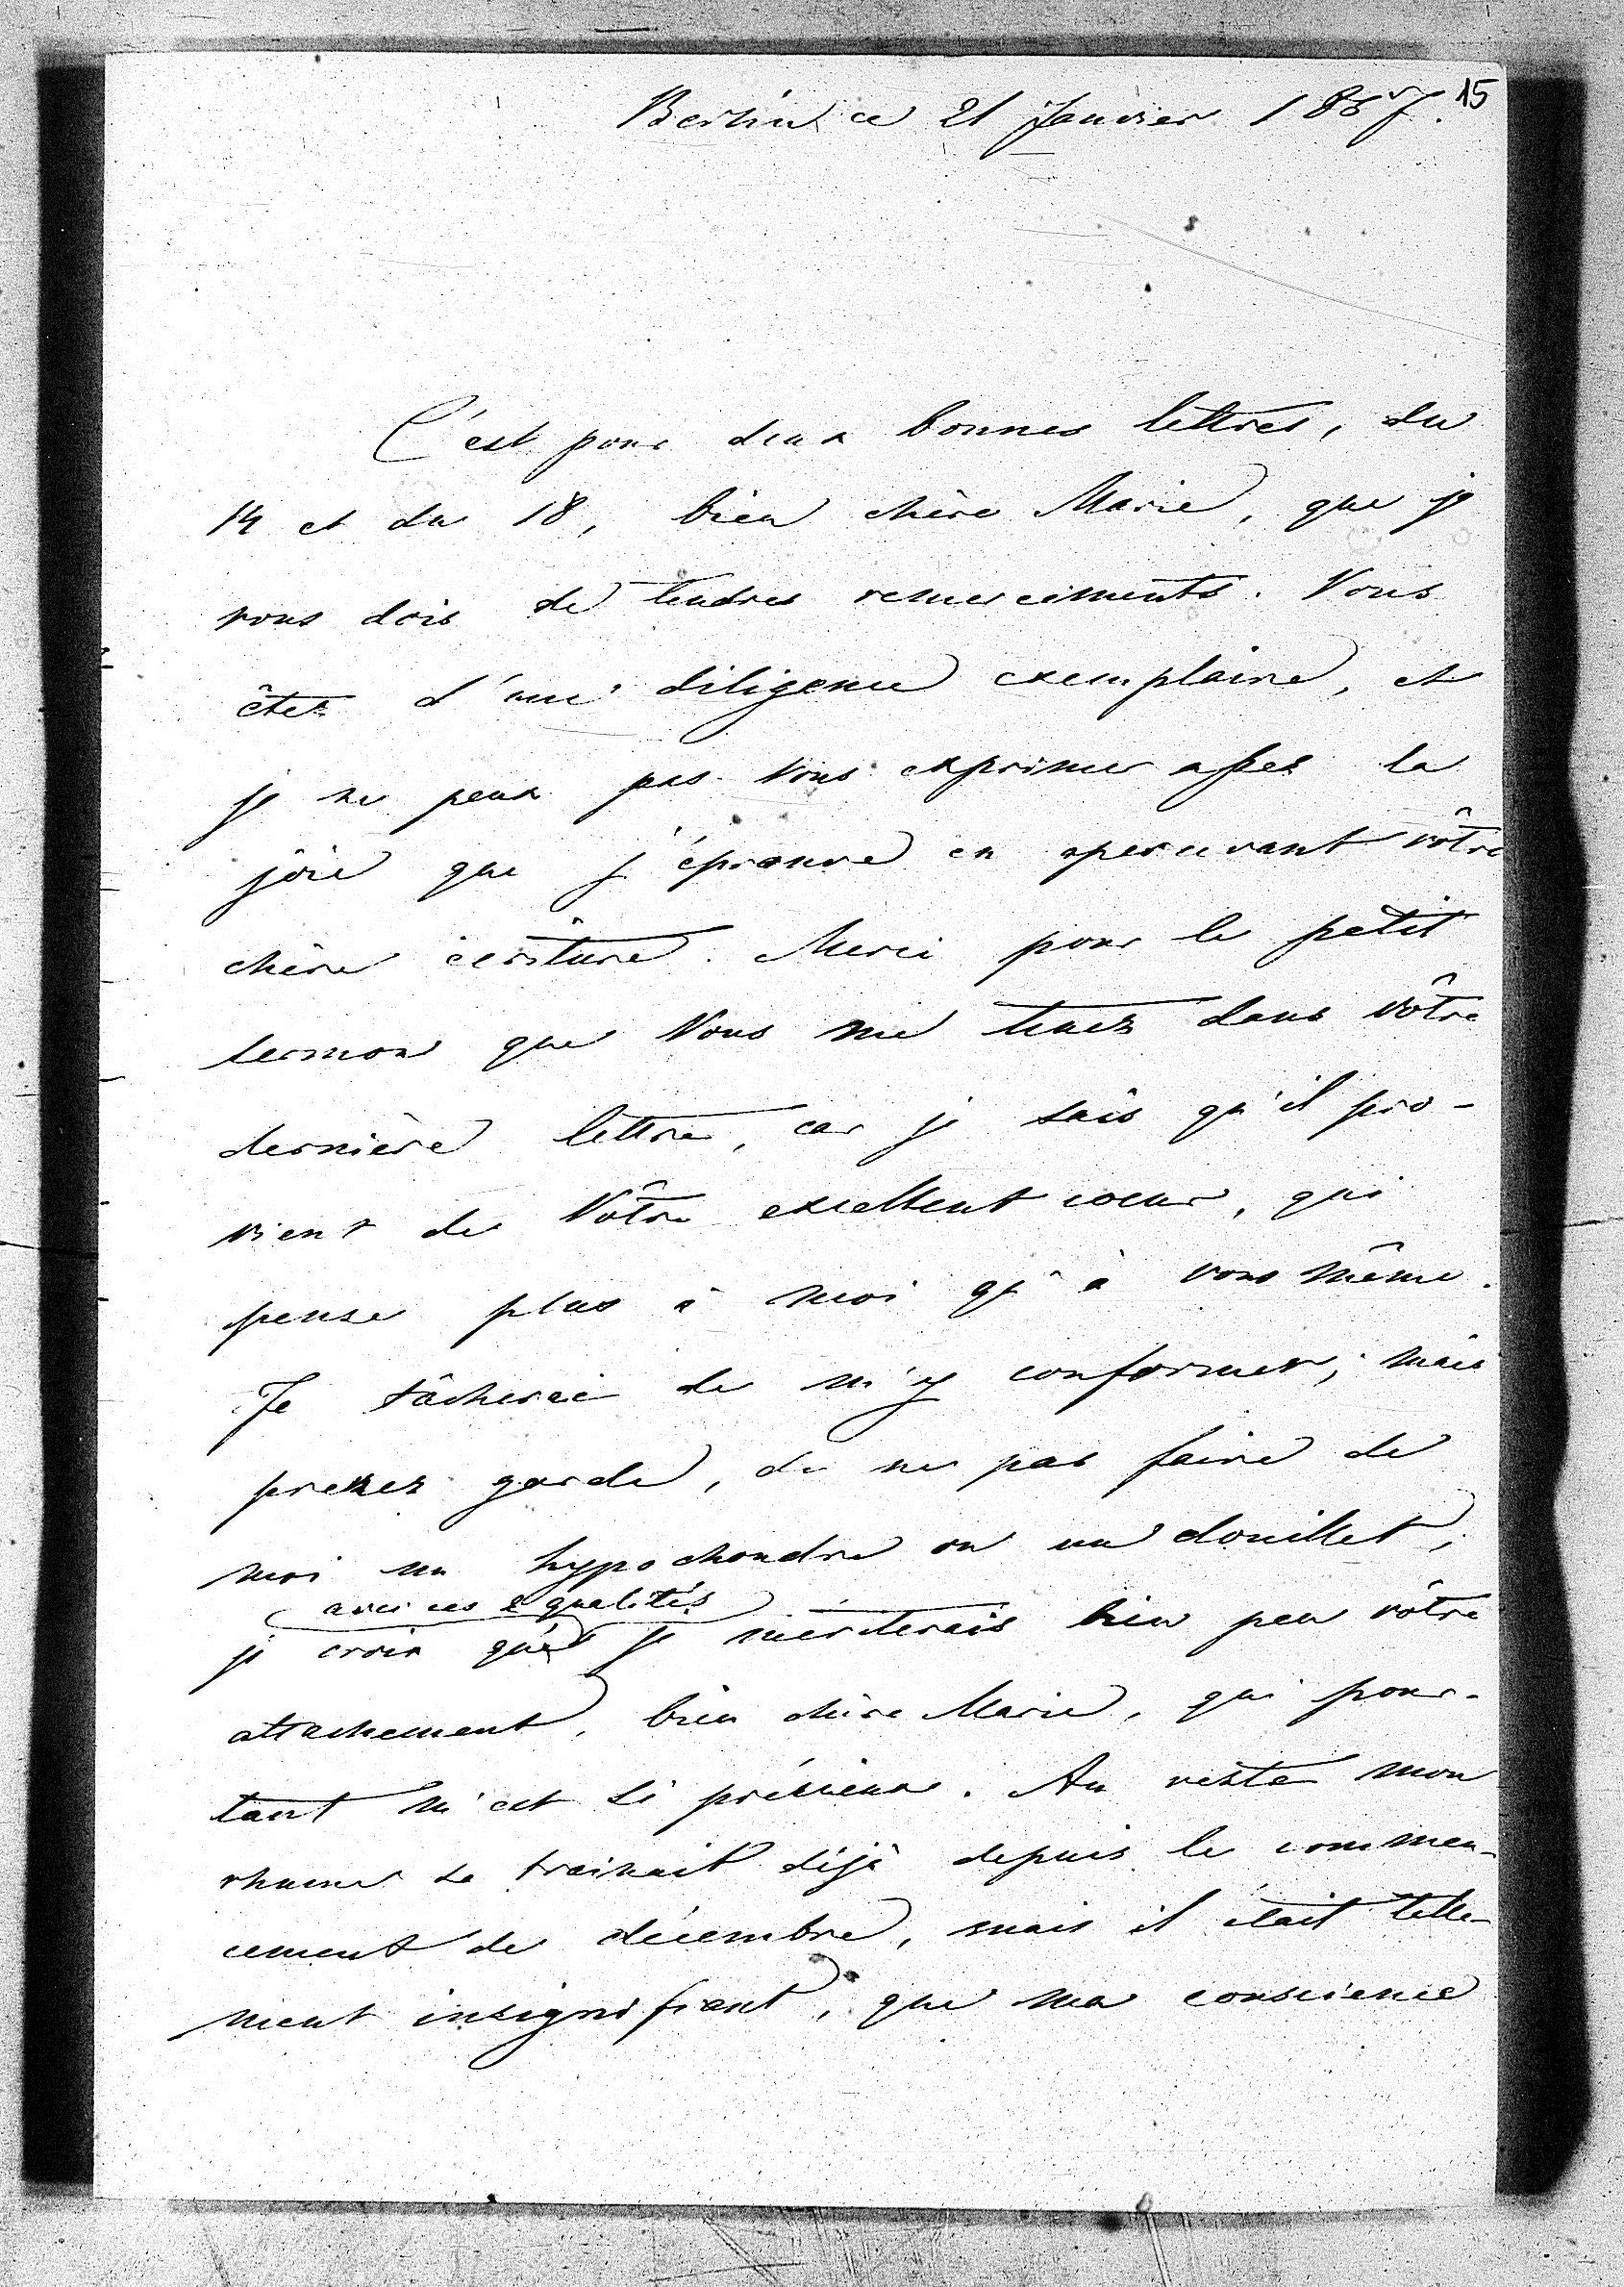 15
Berlin ce 21 Janvier 1857.
C'est pour deux bonnes lettres, du
14 et du 18, bien chère Marie, que je
vous dois de tendres remerciments. Vous
êtes d'une diligence exemplaire, et
je ne peux pas Vous exprimer assez la
joie que j'éprouve en apercevant vôtre
chère écriture. Merci pour le petit
sermon que Vous me tenez dans vôtre
dernière lettre, car je sais qu'il pro-
vient de Vôtre excellent coeur, qui
pense plus à moi qu'à vous même.
Je tâcherai de m'y conformer; mais
prenez garde, de ne pas faire de
moi un hypochondre ou un douillet;
avec ces 2 qualités
je crois que je mériterais bien peu vôtre
attachement, bien chère Marie, qui pour-
tant m'est si précieux. Au reste mon
rhume se trainait déjà depuis le commen-
cement de décembre, mais il était telle-
ment insignifiant, que ma conscience